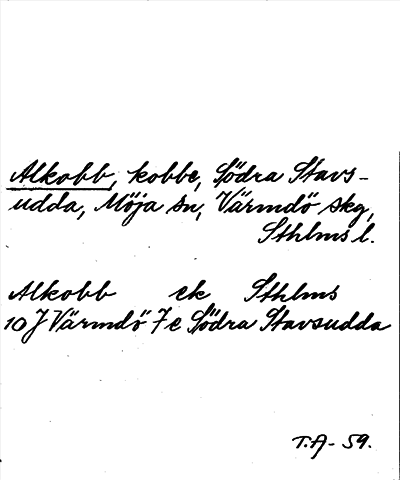 Alkobb, kobbe, Södra Stavs-
udda, Möja sn, Värmdö skg,
Sthlms l.
Alkobb ek Sthlms
10 J Värmdö 7 e Södra Stavsudda
T.A - 59.